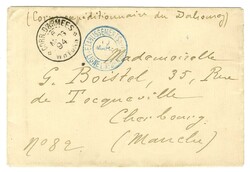 (Corps expéditionnaire du Dahomey)
CORR. D. ARMEES
94
Mademoiselle
G. Boistel, 35, Rue
de Tocqueville
Cherbourg
(Manche)
No 82.